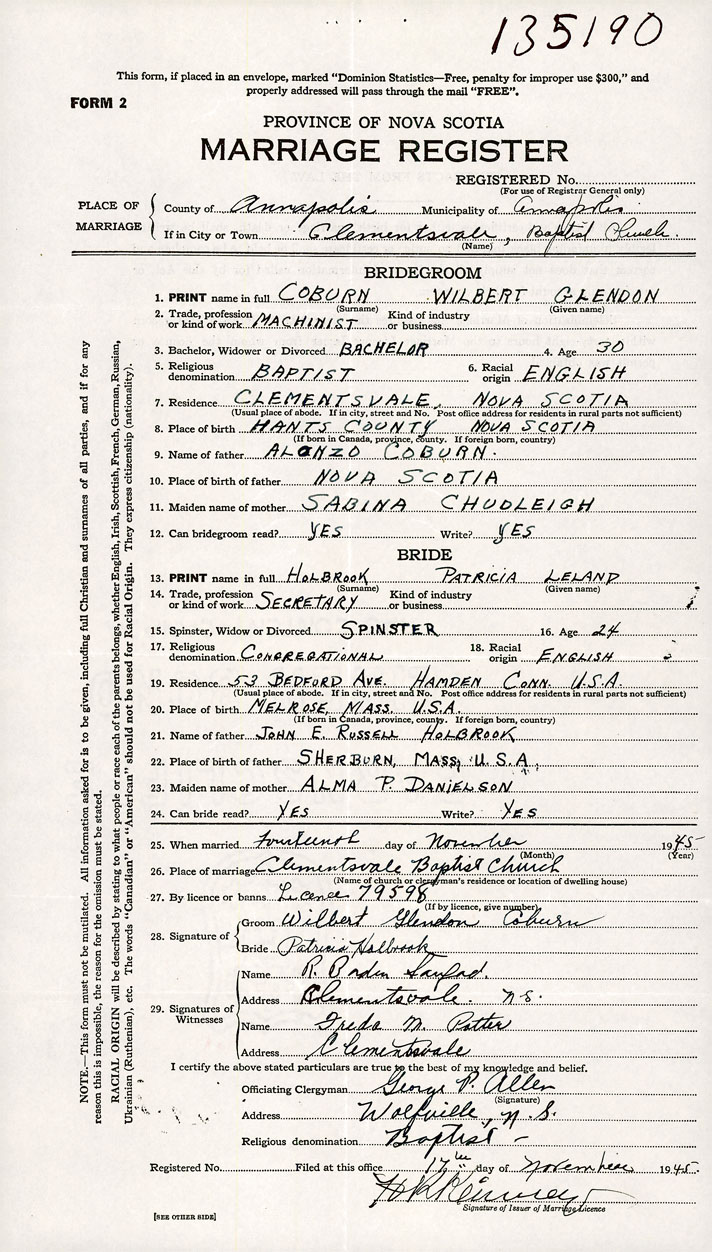 135190
This form, if placed in an envelope, marked "Dominion Statistics—Free, penalty for improper use $300," and
properly addressed will pass through the mail "FREE".
FORM 2
PROVINCE OF NOVA SCOTIA
MARRIAGE REGISTER
REGISTERED No.
(For use of Registrar General only)
PLACE OF MARRIAGE
County of Annapolis Municipality of Annapolis
If in City or Town Clementsvale, Baptist Church.
(Name)
BRIDEGROOM
1. PRINT name in full COBURN WILBERT GLENDON
(Surname) (Given name)
2. Trade, profession or kind of work MACHINIST Kind of industry or business
3. Bachelor, Widower or Divorced BACHELOR 4. Age 30
5. Religious denomination BAPTIST 6. Racial origin ENGLISH
7. Residence CLEMENTSVALE, NOVA SCOTIA
(Usual place of abode. If in city, street and No. Post office address for residents in rural parts not sufficient)
8. Place of birth HANTS COUNTY NOVA SCOTIA
(If born in Canada, province, county. If foreign born, country)
9. Name of father ALONZO COBURN.
10. Place of birth of father NOVA SCOTIA
11. Maiden name of mother SABINA CHUDLEIGH
12. Can bridegroom read? YES Write? YES
BRIDE
13. PRINT name in full HOLBROOK PATRICIA LELAND
(Surname) (Given name)
14. Trade, profession or kind of work SECRETARY Kind of industry or business
15. Spinster, Widow or Divorced SPINSTER 16. Age 24
17. Religious denomination CONGREGATIONAL 18. Racial origin ENGLISH
19. Residence 53 BEDFORD AVE. HAMDEN CONN. U.S.A.
(Usual place of abode. If in city, street and No. Post office address for residents in rural parts not sufficient)
20. Place of birth MELROSE, MASS. U.S.A.
(If born in Canada, province, county. If foreign born, country)
21. Name of father JOHN E. RUSSELL HOLBROOK
22. Place of birth of father SHERBURN, MASS, U.S.A.
23. Maiden name of mother ALMA P. DANIELSON
24. Can bride read? YES Write? YES
25. When married fourteenth day of November 1945
(Month) (Year)
26. Place of marriage Clementsvale Baptist Church
(Name of church or clergyman's residence or location of dwelling house)
27. By licence or banns Licence 79598
(If by licence, give number)
28. Signature of
Groom Wilbert Glendon Coburn
Bride Patricia Holbrook
29. Signatures of Witnesses
Name R. Borden
Address Clementsvale. N.S.
Name Freda M. Potter
Address Clementsvale
I certify the above stated particulars are true to the best of my knowledge and belief.
Officiating Clergyman George P. Allen
(Signature)
Address Wolfville, N.S.
Religious denomination Baptist -
Registered No. Filed at this office 17th day of November 1945
Signature of Issuer of Marriage Licence
[SEE OTHER SIDE]
NOTE.—This form must not be mutilated. All information asked for is to be given, including full Christian and surnames of all parties, and if for any
reason this is impossible, the reason for the omission must be stated.
RACIAL ORIGIN will be described by stating to what people or race each of the parents belongs, whether English, Irish, Scottish, French, German, Russian,
Ukrainian (Ruthenian), etc. The words "Canadian" or "American" should not be used for Racial Origin. They express citizenship (nationality).